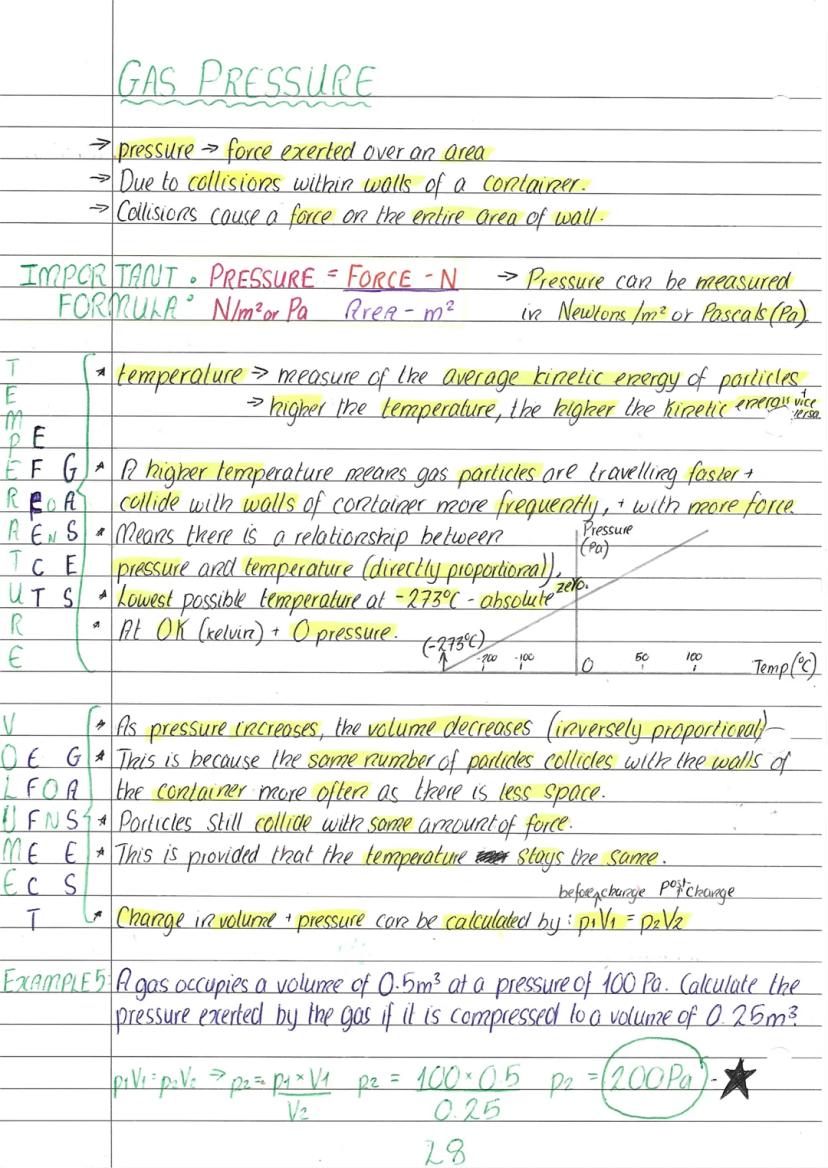 GAS PRESSURE
→ pressure → force exerted over an area
→ Due to collisions within walls of a container.
→ Collisions cause a force on the entire area of wall.
IMPORTANT FORMULA:
PRESSURE = FORCE - N
N/m² or Pa Area - m²
→ Pressure can be measured
in Newtons/m² or Pascals (Pa)
TEMPERATURE EFFECTS ON GASES
* temperature → measure of the average kinetic energy of particles
→ higher the temperature, the higher the kinetic energy + vice versa
* A higher temperature means gas particles are travelling faster +
collide with walls of container more frequently, + with more force.
* Means there is a relationship between
pressure and temperature (directly proportional),
* Lowest possible temperature at -273°C - absolute zero.
* At 0K (kelvin) + 0 pressure.
Pressure
(Pa)
(-273°C)
-200 -100 0 50 100 Temp (°C)
VOLUME EFFECT ON GASES
* As pressure increases, the volume decreases (inversely proportional)
* This is because the same number of particles collides with the walls of
the container more often as there is less space.
* Particles still collide with same amount of force.
* This is provided that the temperature stays the same.
before change post-change
* Change in volume + pressure can be calculated by: p1V1 = p2V2
EXAMPLES: A gas occupies a volume of 0.5m³ at a pressure of 100 Pa. Calculate the
pressure exerted by the gas if it is compressed to a volume of 0.25m³.
p1V1 = p2V2 → p2 = p1 × V1 / V2 p2 = 100 × 0.5 / 0.25 p2 = 200Pa -
28